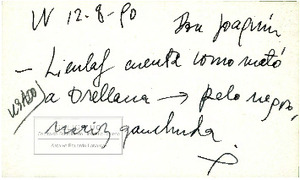 W 12-8-90 Don Joaquín
— Lienlaf cuenta como mató
USADO
a Orellana → pelo negro,
nariz ganchuda.